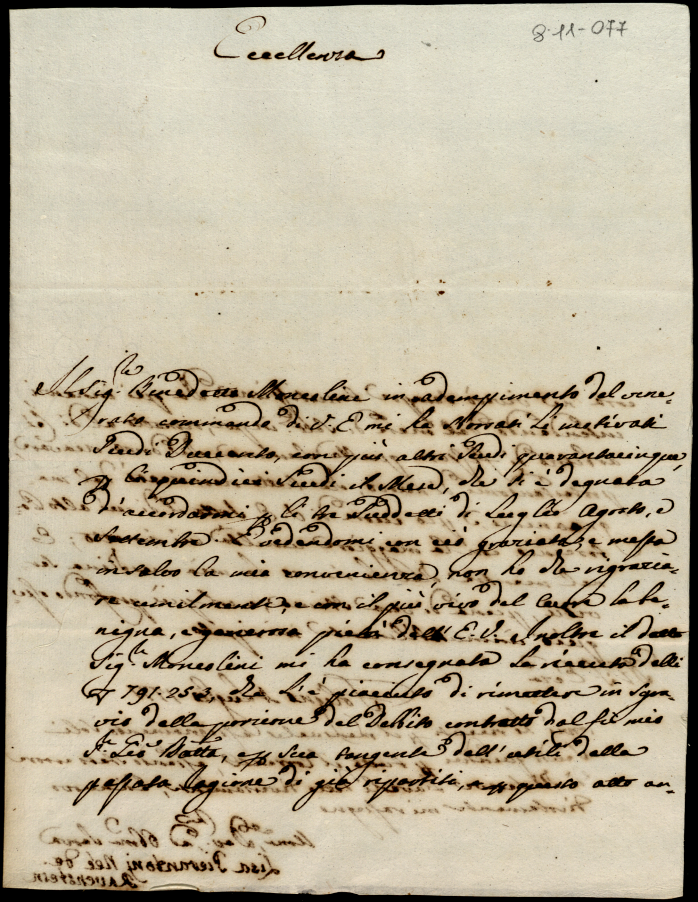 8-11-077
Eccellenza
Il Sig.re Benedetto Moncolini in adempimento del vene-
rato commando di V. E. mi ha li motivati
Scudi Duecento, con più altri Scudi quarantacinque,
p li quindici Scudi il Mese, che si è degnata
d'accordarmi p li tre suddetti di Luglio Agosto, e
Settembre. Vedendomi con ciò graziata, e messa
in salvo la mia convenienza, non ho che ringrazia-
re umilmente, e con il più vivo del Cuore la be-
nigna, e generosa pietà dell'E. V. Inoltre il detto
Sig.re Moncolini mi ha consegnata la ricevuta delli
791.25.3 che l'è piaciuto di rimettere in sgra-
vio della porzione del Debito contratto dal fù mio
Gio: Batta, e p sua tangente dell'utili della
passata Ragione di già ripartiti, e p questo atto an-
Lisa Pieranzoni Nèe de
Ravenstein